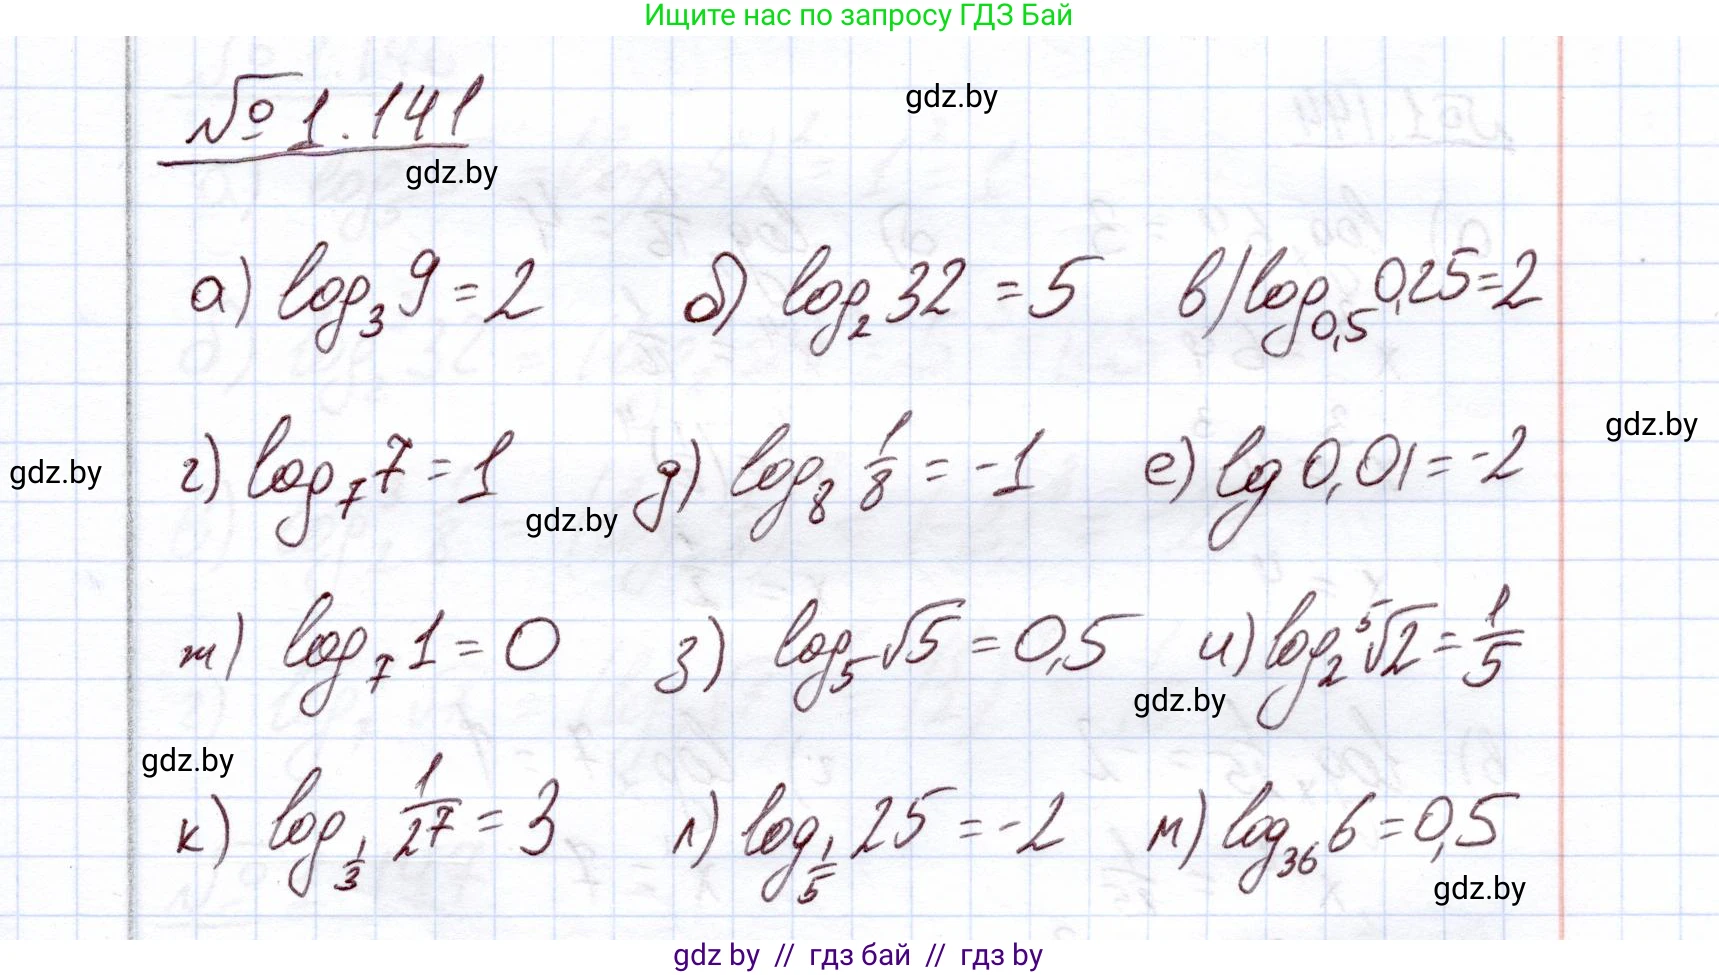 Ищите нас по запросу ГДЗ Бай
№ 1.141
gdz.by
gdz.by
а) log₃ 9 = 2   б) log₂ 32 = 5   в) log₀,₅ 0,25 = 2
gdz.by
г) log₇ 7 = 1   д) log₈ 1/8 = -1   е) lg 0,01 = -2
gdz.by
gdz.by
ж) log₇ 1 = 0   з) log₅ √5 = 0,5   и) log₂ ⁵√2 = 1/5
gdz.by
gdz.by
к) log_1/3 1/27 = 3   л) log_1/5 25 = -2   м) log₃₆ 6 = 0,5
gdz.by
gdz by // гдз бай // гдз by